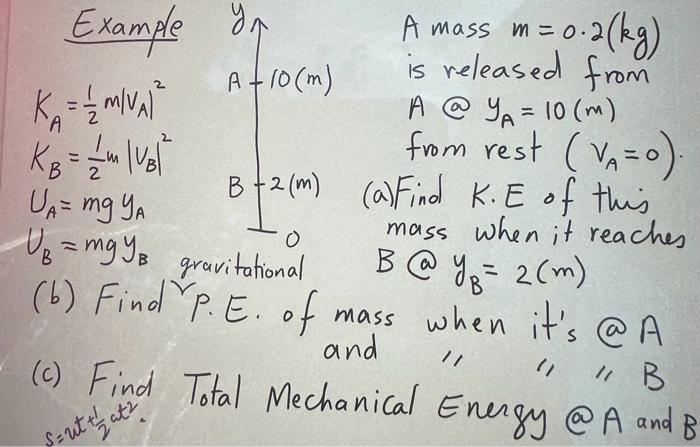 Example
y
A 10 (m)
B 2 (m)
0
K_A = 1/2 m|V_A|²
K_B = 1/2 m |V_B|²
U_A = mg y_A
U_B = mg y_B
A mass m = 0.2 (kg)
is released from
A @ y_A = 10 (m)
from rest ( V_A = 0 ).
(a) Find K.E of this
mass when it reaches
B @ y_B = 2 (m)
gravitational
(b) Find P.E. of mass when it's @ A
and " " " B
(c) Find Total Mechanical Energy @ A and B
s = ut + 1/2 at².